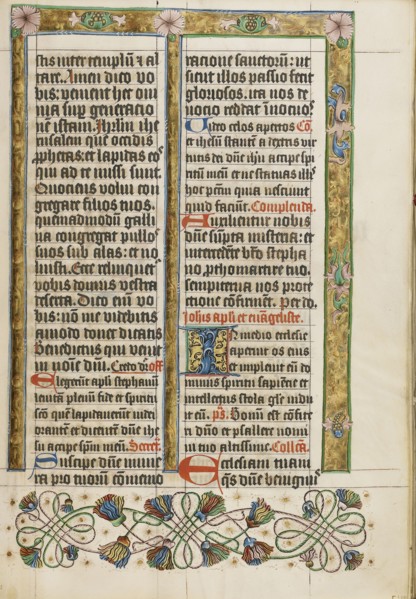 stis inter templu et al
tare. Amen dico vo
bis: venient hec om
nia sup generacio
ne istam. Jhrlm ihr
nsalem que occidis
pphetas: et lapidas eos
qui ad te missi sunt.
Quociens volui con
gregare filios tuos.
quemadmodu galli
na congregat pullos
suos sub alas: et no
luisti. Ecce relinquet
vobis domus vestra
deserta. Dico eni vo
bis: non me videbitis
amodo donec dicatis
Benedictus qui venit
in noie dni. Credo off
Elegerunt apli stephanu
levita plenu fide et spiritu
sco que lapidaverunt iudei
orante et dicente dne ihe
su accipe spm meu. Secret
Suscipe dne mune
ra pro tuoru comemo
racione sanctoru: ut
sicut illos passio fecit
gloriosos. ita nos de
vocio reddat innocuos
Video celos apertos Co
et ihesum stante a dextris vir
tutis dei dne ihu accipe spi
ritu meu et ne statuas illis
hoc pctm quia nesciunt
quid faciut. Complenda.
Auxilientur nobis
dne supta misteria: et
intercedete bto stepha
no, pthomartire tuo.
sempiterna nos prote
ctione cofirmet. Per do.
Johis apli et ewageliste.
In medio ecclesie
aperuit os eius
et implevit eu do
minus spiritu sapiencie et
intellectus stola glie indu
it eu. ps. Bonum est cofite
ri dno et psallere nomi
ni tuo altissime. Collecta.
Ecclesiam tuam
qs dne benignus